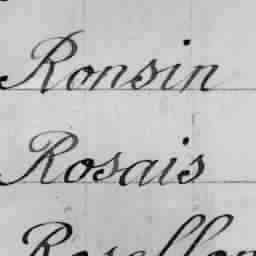 Ronsin
Rosais